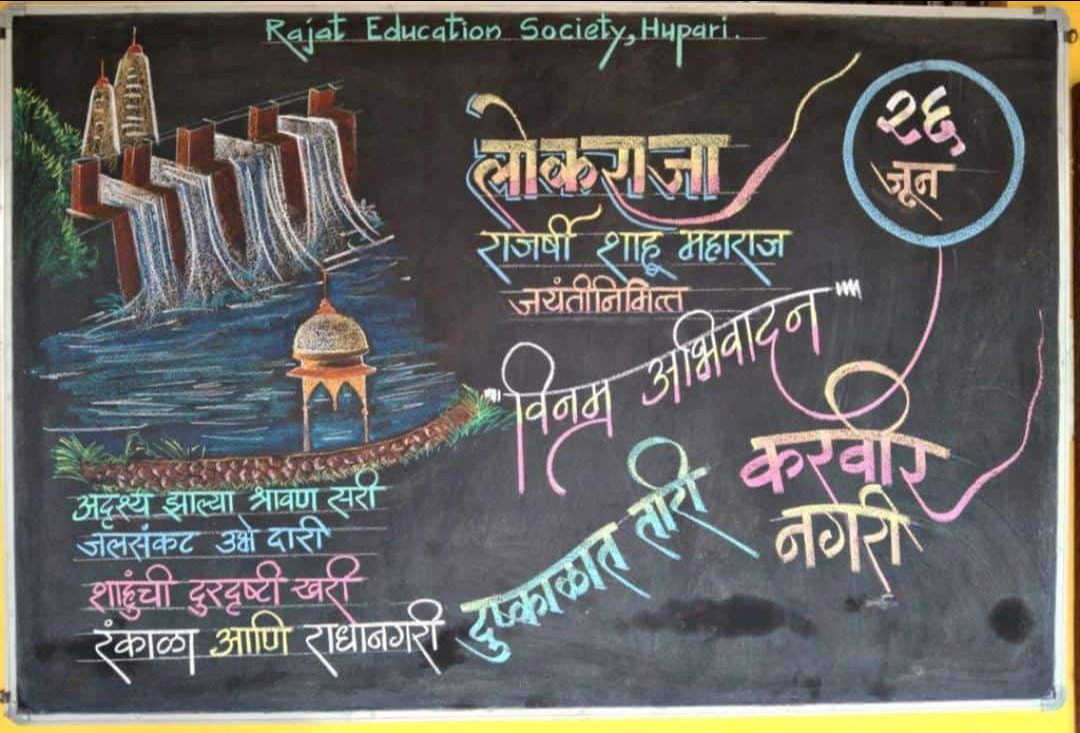 Rajat Education Society, Hupari.
२६
जून
लोकराजा
राजर्षी शाहू महाराज
जयंतीनिमित्त
"विनम्र अभिवादन"
अदृश्य झाल्या श्रावण सरी
जलसंकट उभे दारी
शाहुंची दुरदृष्टी खरी
रंकाळा आणि राधानगरी
दुष्काळात तारी
करवीर
नगरी